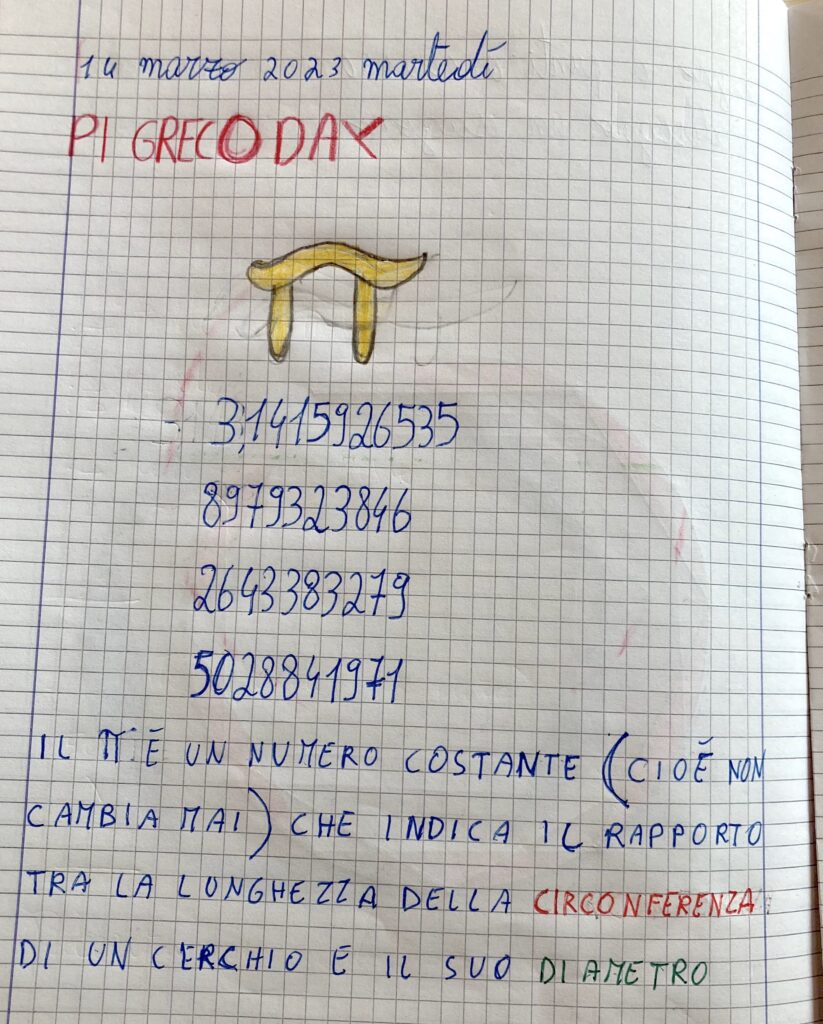 14 marzo 2023 martedì
PI GRECO DAY
3,1415926535
8979323846
2643383279
5028841971
IL π È UN NUMERO COSTANTE (CIOÈ NON
CAMBIA MAI) CHE INDICA IL RAPPORTO
TRA LA LUNGHEZZA DELLA CIRCONFERENZA
DI UN CERCHIO E IL SUO DIAMETRO